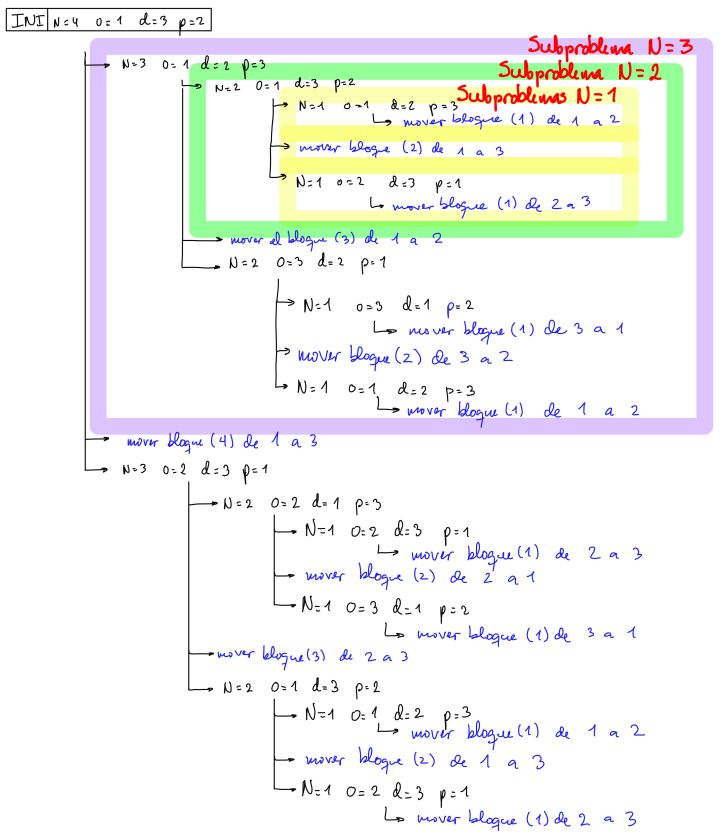 INI N=4 o=1 d=3 p=2
Subproblema N=3
N=3 o=1 d=2 p=3
Subproblema N=2
N=2 o=1 d=3 p=2
Subproblemas N=1
N=1 o=1 d=2 p=3
mover bloque (1) de 1 a 2
mover bloque (2) de 1 a 3
N=1 o=2 d=3 p=1
mover bloque (1) de 2 a 3
mover el bloque (3) de 1 a 2
N=2 o=3 d=2 p=1
N=1 o=3 d=1 p=2
mover bloque (1) de 3 a 1
mover bloque (2) de 3 a 2
N=1 o=1 d=2 p=3
mover bloque (1) de 1 a 2
mover bloque (4) de 1 a 3
N=3 o=2 d=3 p=1
N=2 o=2 d=1 p=3
N=1 o=2 d=3 p=1
mover bloque (1) de 2 a 3
mover bloque (2) de 2 a 1
N=1 o=3 d=1 p=2
mover bloque (1) de 3 a 1
mover bloque (3) de 2 a 3
N=2 o=1 d=3 p=2
N=1 o=1 d=2 p=3
mover bloque (1) de 1 a 2
mover bloque (2) de 1 a 3
N=1 o=2 d=3 p=1
mover bloque (1) de 2 a 3